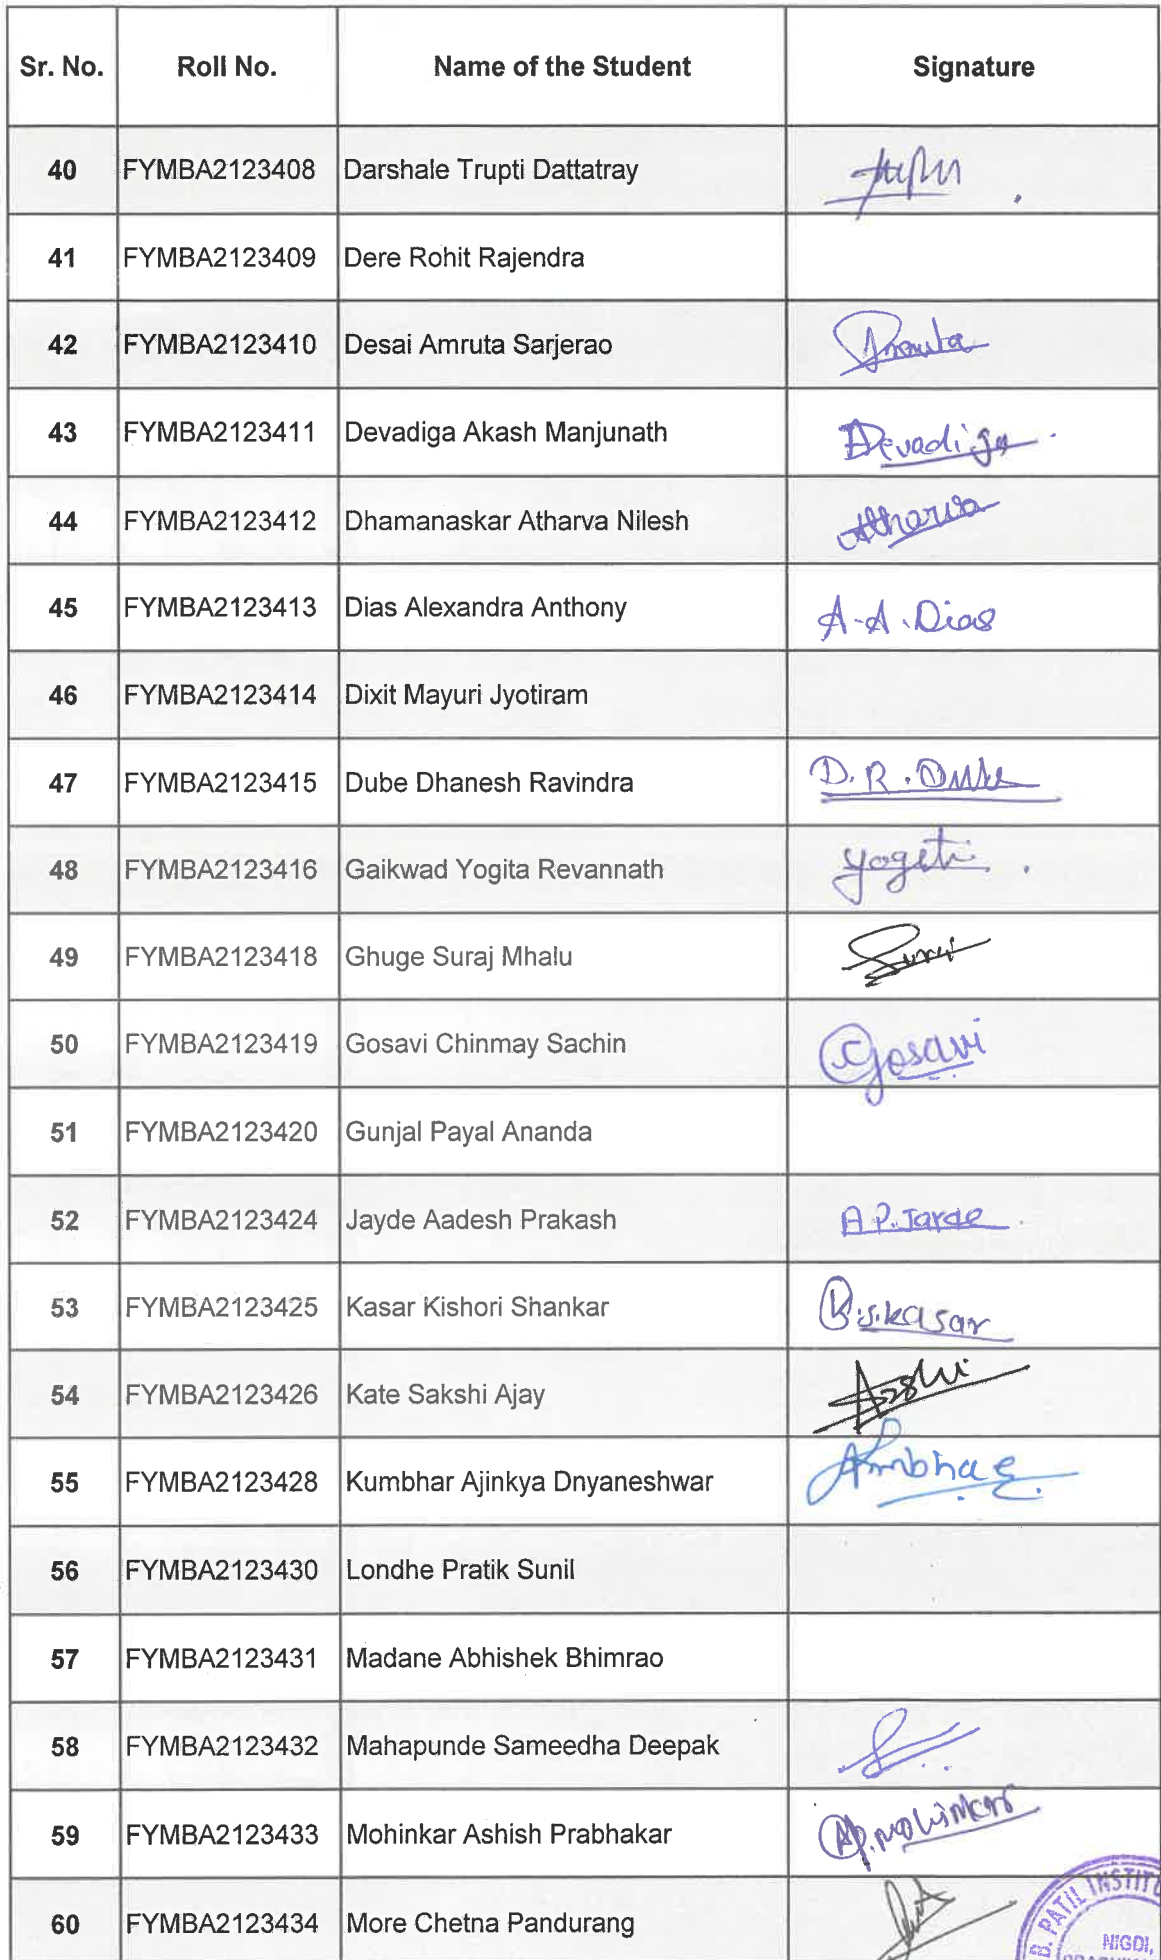 Sr. No. Roll No. Name of the Student Signature
40 FYMBA2123408 Darshale Trupti Dattatray
41 FYMBA2123409 Dere Rohit Rajendra
42 FYMBA2123410 Desai Amruta Sarjerao Amruta
43 FYMBA2123411 Devadiga Akash Manjunath Devadiga
44 FYMBA2123412 Dhamanaskar Atharva Nilesh Atharva
45 FYMBA2123413 Dias Alexandra Anthony A.A.Dias
46 FYMBA2123414 Dixit Mayuri Jyotiram
47 FYMBA2123415 Dube Dhanesh Ravindra D.R.Dube
48 FYMBA2123416 Gaikwad Yogita Revannath
49 FYMBA2123418 Ghuge Suraj Mhalu Suraj
50 FYMBA2123419 Gosavi Chinmay Sachin Gosavi
51 FYMBA2123420 Gunjal Payal Ananda
52 FYMBA2123424 Jayde Aadesh Prakash
53 FYMBA2123425 Kasar Kishori Shankar K.S.kasar
54 FYMBA2123426 Kate Sakshi Ajay
55 FYMBA2123428 Kumbhar Ajinkya Dnyaneshwar
56 FYMBA2123430 Londhe Pratik Sunil
57 FYMBA2123431 Madane Abhishek Bhimrao
58 FYMBA2123432 Mahapunde Sameedha Deepak
59 FYMBA2123433 Mohinkar Ashish Prabhakar AP.mohinkar
60 FYMBA2123434 More Chetna Pandurang
D. PATIL INSTITU
NIGDI,